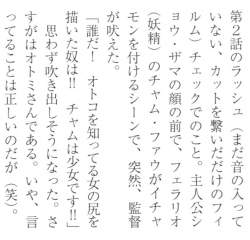 第２話のラッシュ（まだ音の入って
いない、カットを繋いだだけのフィ
ルム）チェックでのこと。主人公シ
ョウ・ザマの顔の前で、フェラリオ
（妖精）のチャム・ファウがイチャ
モンを付けるシーンで、突然、監督
が吠えた。
「誰だ！　オトコを知ってる女の尻を
描いた奴は‼　チャムは少女です‼」
　思わず吹き出しそうになった。さ
すがはオトミさんである。いや、言
ってることは正しいのだが（笑）。